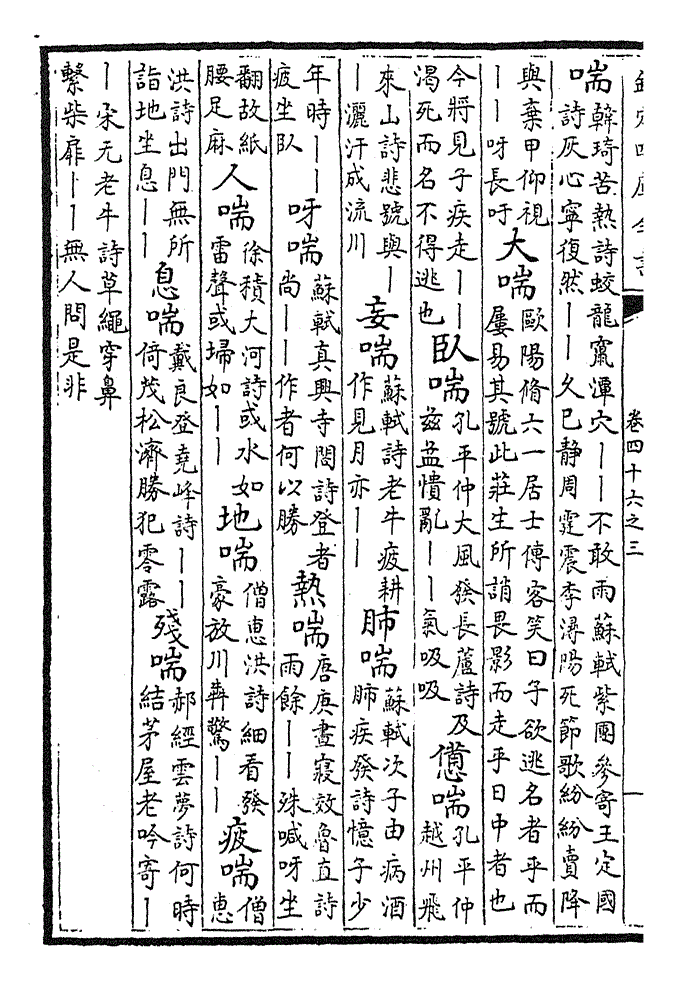 欽定四庫全書
卷四十六之三
喘韓琦苦熱詩蛟龍竄潭穴——不敢雨蘇軾紫團參寄王定國詩灰心寧復然——久已靜周霆震李潯陽死節歌紛紛賣降
與棄甲仰視——呀長吁 大喘歐陽脩六一居士傳客笑曰子欲逃名者乎而屢易其號此莊生所誚畏影而走乎日中者也
今將見子疾走——渴死而名不得逃也 臥喘孔平仲大風發長蘆詩及兹益憒亂——氣吸吸 憊喘孔平仲越州飛
來山詩悲號與——灑汗成流川 妄喘蘇軾詩老牛疲耕作見月亦—— 肺喘蘇軾次子由病酒肺疾發詩憶子少
年時——疲坐臥 呀喘蘇軾真興寺閣詩登者尚——作者何以勝 熱喘唐庚晝寢效魯直詩雨餘——殊喊呀坐
翻故紙腰足麻 人喘徐積大河詩或水如雷聲或埽如—— 地喘僧惠洪詩細看發豪放川犇驚—— 疲喘僧惠
洪詩出門無所詣地坐息—— 息喘戴良登堯峰詩——倚茂松濟勝犯零露 殘喘郝經雲夢詩何時結茅屋老吟寄—
—宋无老牛詩草繩穿鼻繫柴扉——無人問是非